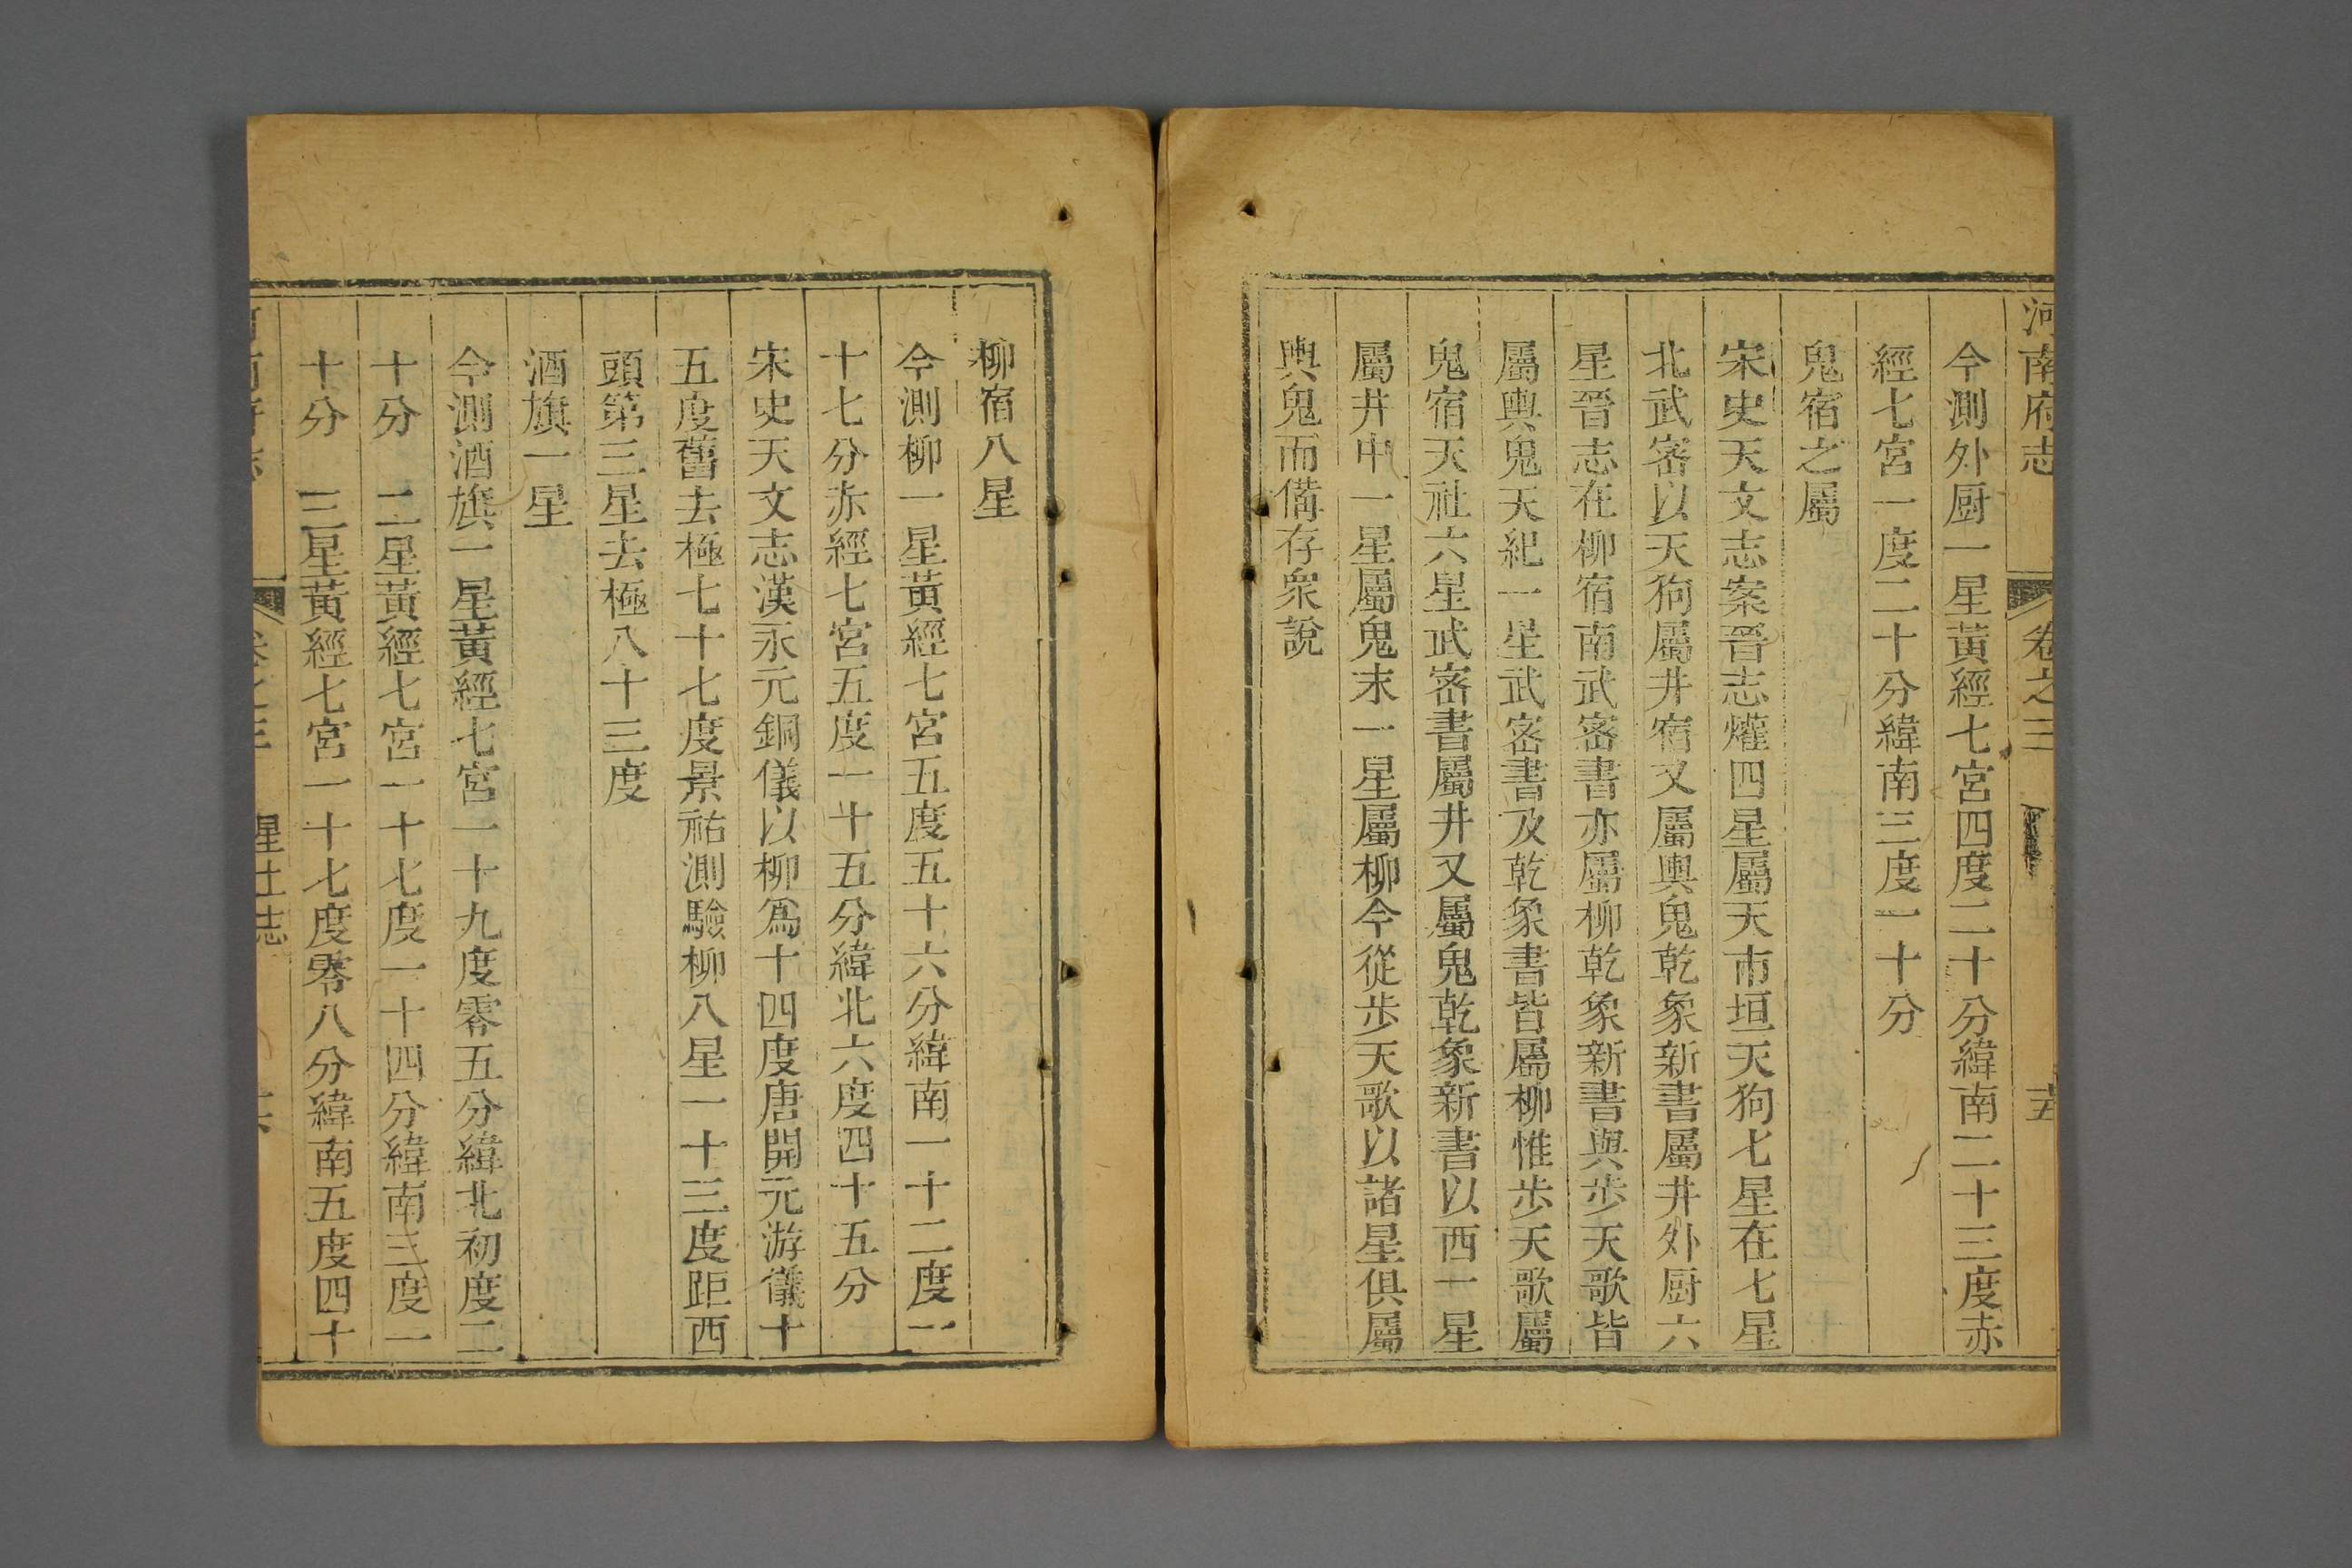 河南府志 卷之三 十五
今測外厨一星黃經七宮四度二十分緯南二十三度赤
經七宮一度二十分緯南三度一十分
鬼宿之屬
宋史天文志案晉志爟四星屬天市垣天狗七星在七星
北武密以天狗屬井宿又屬輿鬼乾象新書屬井外厨六
星晉志在柳宿南武密書亦屬柳乾象新書與步天歌皆
屬輿鬼天紀一星武密書及乾象書皆屬柳惟步天歌屬
鬼宿天社六星武密書屬井又屬鬼乾象新書以西一星
屬井中一星屬鬼末一星屬柳今從步天歌以諸星俱屬
輿鬼而備存衆說
柳宿八星
今測柳一星黃經七宮五度五十六分緯南一十二度二
十七分赤經七宮五度一十五分緯北六度四十五分
宋史天文志漢永元銅儀以柳爲十四度唐開元游儀十
五度舊去極七十七度景祐測驗柳八星一十三度距西
頭第三星去極八十三度
酒旗一星
今測酒旗一星黃經七宮一十九度零五分緯北初度二
十分 二星黃經七宮一十七度一十四分緯南三度一
十分 三星黃經七宮一十七度零八分緯南五度四十
星土志